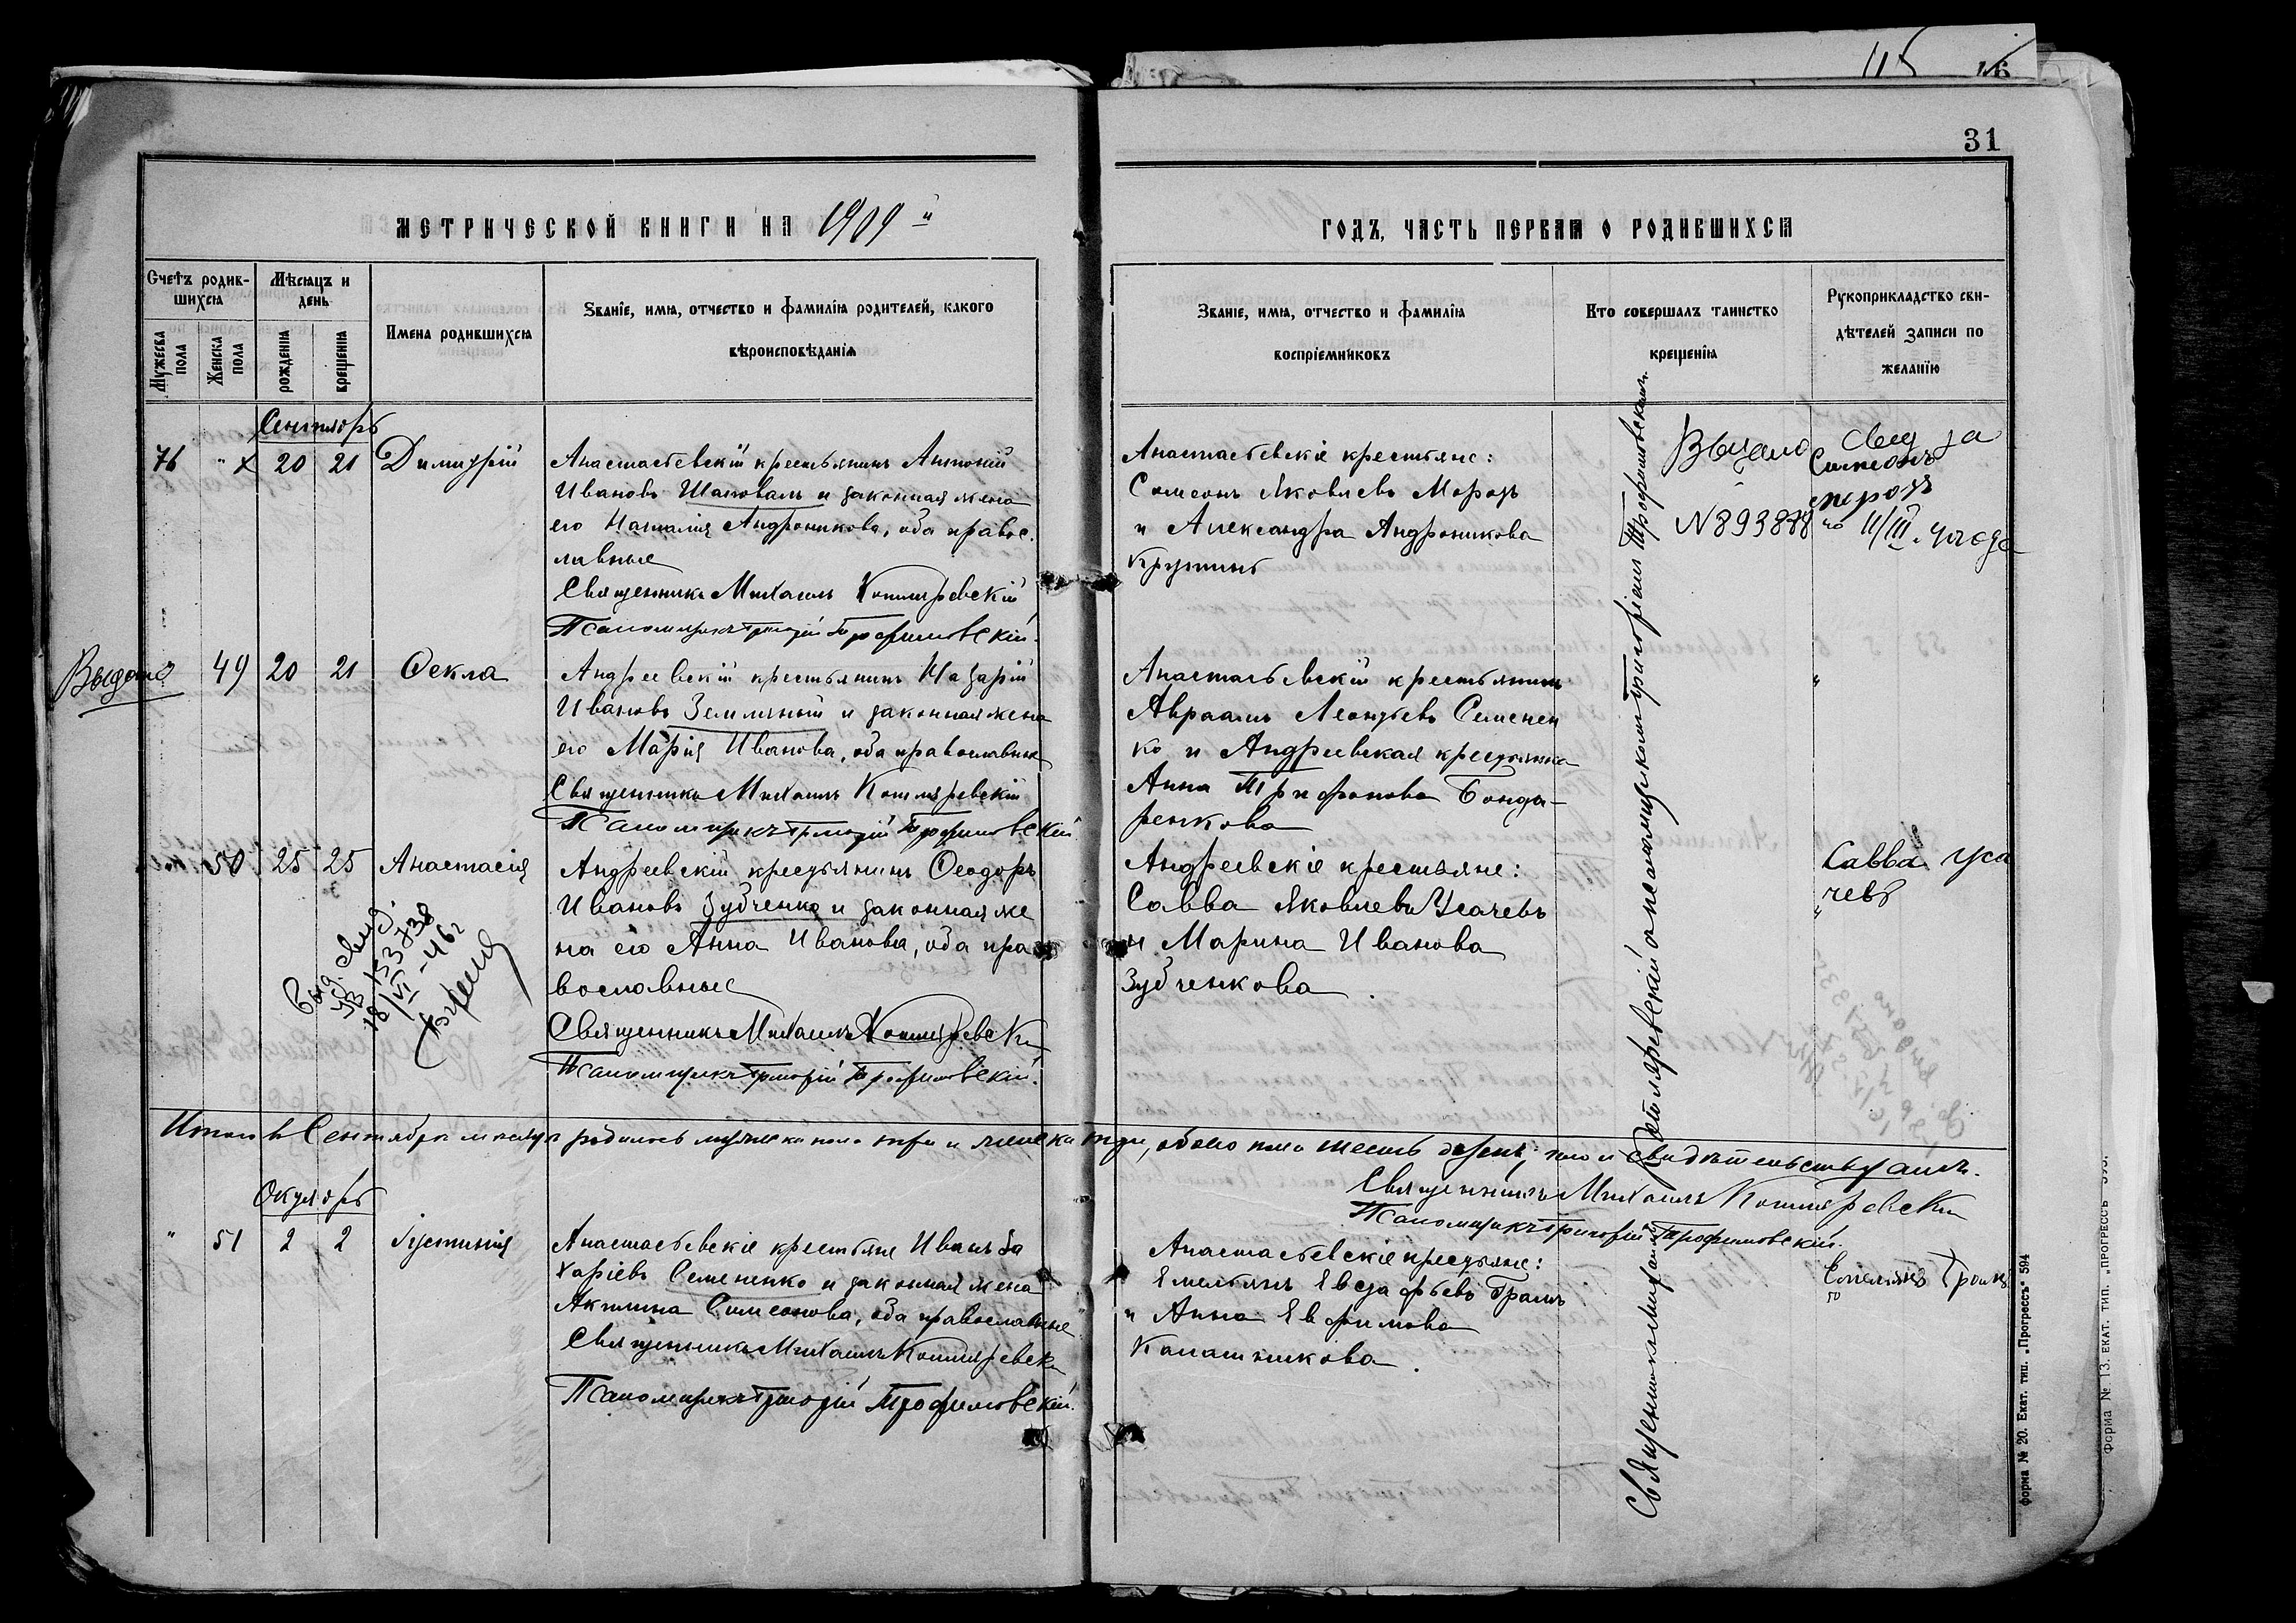 115
31
МЕТРИЧЕСКОЙ КНИГИ НА 1909 й
ГОДЪ, ЧАСТЬ ПЕРВАЯ О РОДИВШИХСЯ
Счетъ родив-
шихся
Мужеска пола
Женска пола
Мѣсяцъ и
день
рожденія
крещенія
Имена родившихся
Званіе, имя, отчество и фамилія родителей, какого
вѣроисповѣданія
Званіе, имя, отчество и фамилія
воспріемниковъ
Кто совершалъ таинство
крещенія
Рукоприкладство сви-
дѣтелей записи по
желанію
Сентябрь
76 " 20 21 Димитрій
Анастасьевскій крестьянинъ Антоній
Ивановъ Шаповалъ и законная жена
его Наталія Андроникова, оба правос
лавные
Священникъ Михаилъ Котляревскій
Псаломщикъ Григорій Трофимовскій.
Анастасьевскіе крестьяне:
Симеонъ Яковлевъ Морозъ
и Александра Андроникова
Выдано
Симеонъ
морозъ
Выдано 49 20 21 Ѳекла
Андреевскій крестьянинъ Назарій
Ивановъ Земляный и законная жена
его Марія Иванова, оба православные
Священникъ Михаилъ Котляревскій
Псаломщикъ Григорій Трофимовскій
Анастасьевскій крестьянинъ
Авраамъ Леонтьевъ Семенен
ко и Андреевская крестьянка
Анна Трифонова Бонда-
ренкова
" 50 25 25 Анастасія
Андреевскій крестьянинъ Ѳеодоръ
Ивановъ Зубченко и законная же
на его Анна Иванова, оба пра
вославные
Священникъ Михаилъ Котляревскій
Псаломщикъ Григорій Трофимовскій.
Андреевскіе крестьяне:
Савва Яковлевъ Усачевъ
и Марина Иванова
Зубченкова.
Савва Уса
чевъ
Выд. свид.
18/VI-46г
Итого въ Сентябрѣ месяцѣ родилось мужеска пола три и женска три, обоего пола шесть душъ, что и свидѣтельствуемъ.
Священникъ Михаилъ Котляревскій
Псаломщикъ Григорій Трофимовскій.
Октябрь
" 51 2 2 Іустинія
Анастасьевскіе крестьяне Иванъ За
харіевъ Семененко и законная жена
Акилина Симеонова, оба православные
Священникъ Михаилъ Котляревскій
Псаломщикъ Григорій Трофимовскій.
Анастасьевскіе крестьяне:
Емельянъ
и Анна Евфимова
Калашникова.
Священникъ Михаилъ Котляревскій с псаломщикомъ Григоріемъ Трофимовскимъ.
форма № 20. Екат. тип. „Прогрессъ“ 594
Форма № 13. ЕКАТ. ТИП. „ПРОГРЕССЪ“